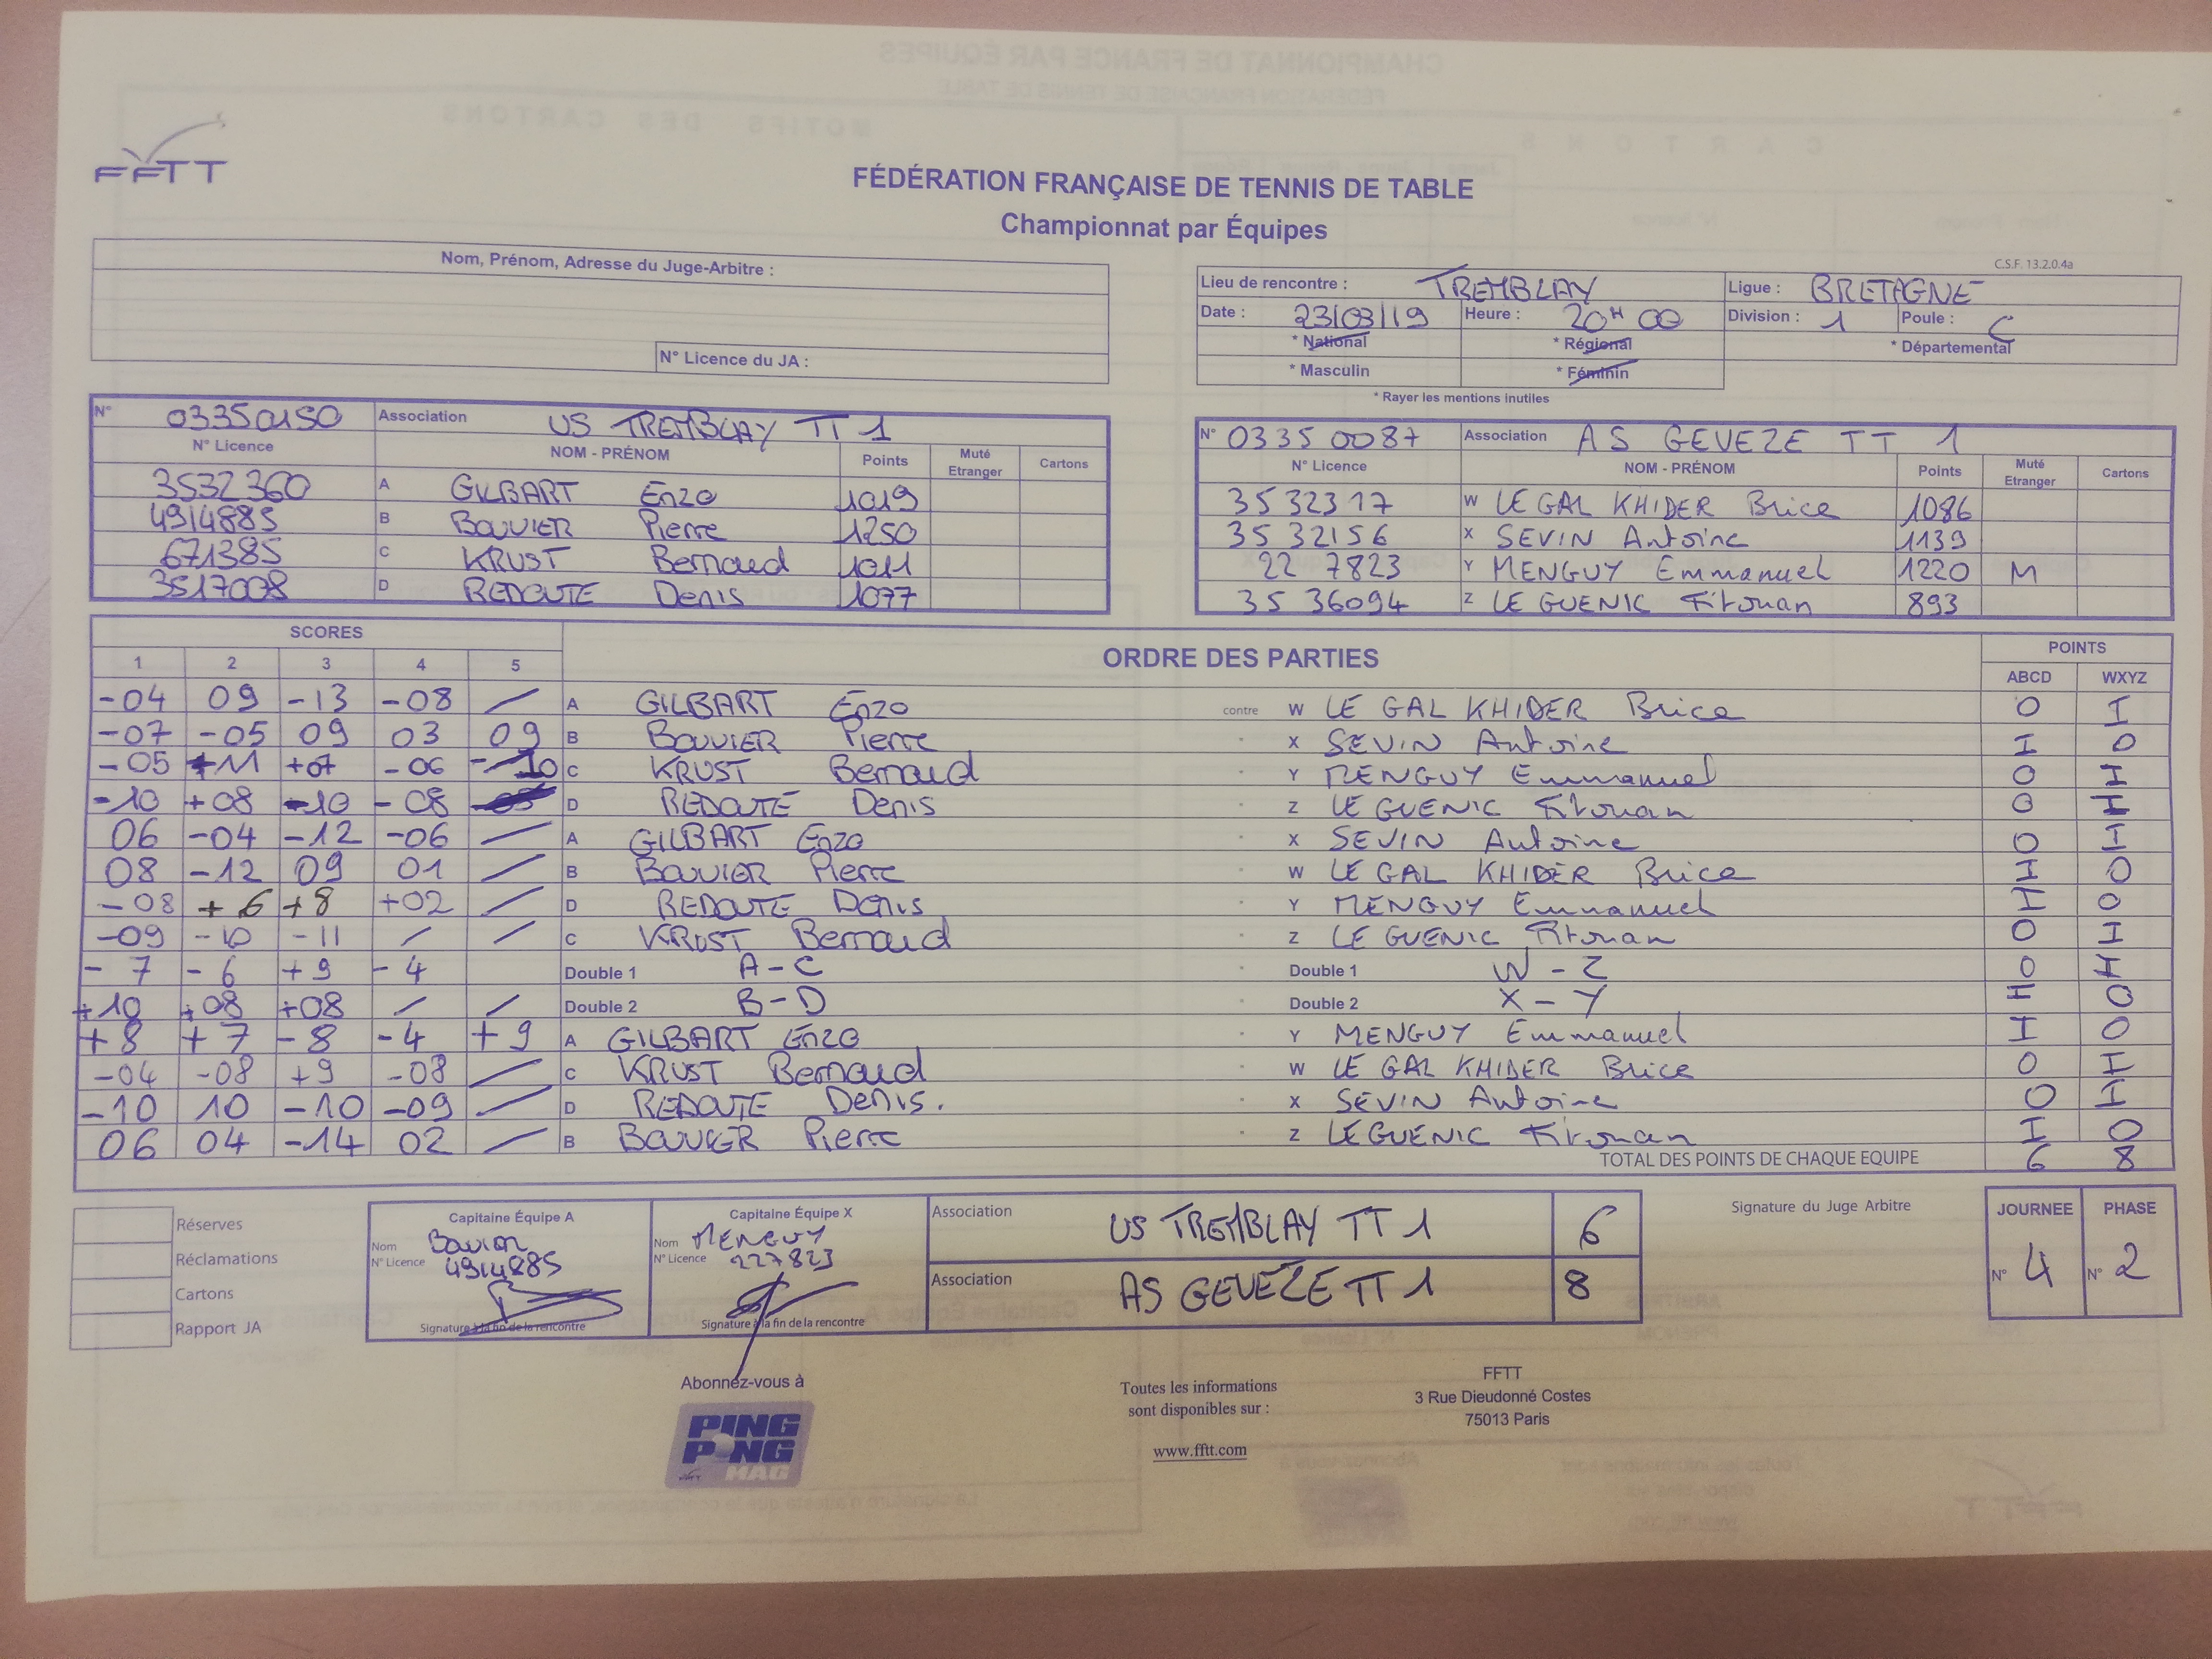 FFTT
FÉDÉRATION FRANÇAISE DE TENNIS DE TABLE
Championnat par Équipes
Nom, Prénom, Adresse du Juge-Arbitre :
N° Licence du JA :
C.S.F. 13.2.0.4a
Lieu de rencontre : TREMBLAY Ligue : BRETAGNE
Date : 23/03/19 Heure : 20H 00 Division : 1 Poule : C
* National * Régional * Départemental
* Masculin * Féminin
* Rayer les mentions inutiles
N° 03350150 Association US TREMBLAY TT 1
N° Licence NOM - PRÉNOM Points Muté Etranger Cartons
3532360 A GILBART Enzo 1019
4914885 B BOUVIER Pierre 1250
671385 C KRUST Bernard 1011
3517008 D REDOUTE Denis 1077
N° 0335 0087 Association AS GEVEZE TT 1
N° Licence NOM - PRÉNOM Points Muté Etranger Cartons
35 32317 W LE GAL KHIDER Brice 1086
35 32156 X SEVIN Antoine 1139
22 7823 Y MENGUY Emmanuel 1220 M
35 36094 Z LE GUENIC Titouan 893
SCORES ORDRE DES PARTIES POINTS
1 2 3 4 5 ABCD WXYZ
-04 09 -13 -08 / A GILBART Enzo contre W LE GAL KHIDER Brice 0 I
-07 -05 09 03 09 B BOUVIER Pierre X SEVIN Antoine I 0
-05 +11 +07 -06 -10 C KRUST Bernard Y MENGUY Emmanuel 0 I
-10 +08 -10 -08 D REDOUTE Denis Z LE GUENIC Titouan 0 I
06 -04 -12 -06 / A GILBART Enzo X SEVIN Antoine 0 I
08 -12 09 01 / B BOUVIER Pierre W LE GAL KHIDER Brice I 0
-08 +6 +8 +02 / D REDOUTE Denis Y MENGUY Emmanuel I 0
-09 -10 -11 / / C KRUST Bernard Z LE GUENIC Titouan 0 I
-7 -6 +9 -4 Double 1 A-C Double 1 W-Z 0 I
+10 +08 +08 / / Double 2 B-D Double 2 X-Y I 0
+8 +7 -8 -4 +9 A GILBART Enzo Y MENGUY Emmanuel I 0
-04 -08 +9 -08 / C KRUST Bernard W LE GAL KHIDER Brice 0 I
-10 10 -10 -09 / D REDOUTE Denis. X SEVIN Antoine 0 I
06 04 -14 02 / B BOUVIER Pierre Z LE GUENIC Titouan I 0
TOTAL DES POINTS DE CHAQUE EQUIPE 6 8
Réserves
Réclamations
Cartons
Rapport JA
Capitaine Équipe A
Nom Bouvier
N° Licence 4914885
Signature à la fin de la rencontre
Capitaine Équipe X
Nom MENGUY
N° Licence 227823
Signature à la fin de la rencontre
Association US TREMBLAY TT 1 6
Association AS GEVEZE TT 1 8
Signature du Juge Arbitre
JOURNEE PHASE
N° 4 N° 2
Abonnez-vous à
PING PONG MAG
Toutes les informations
sont disponibles sur :
www.fftt.com
FFTT
3 Rue Dieudonné Costes
75013 Paris